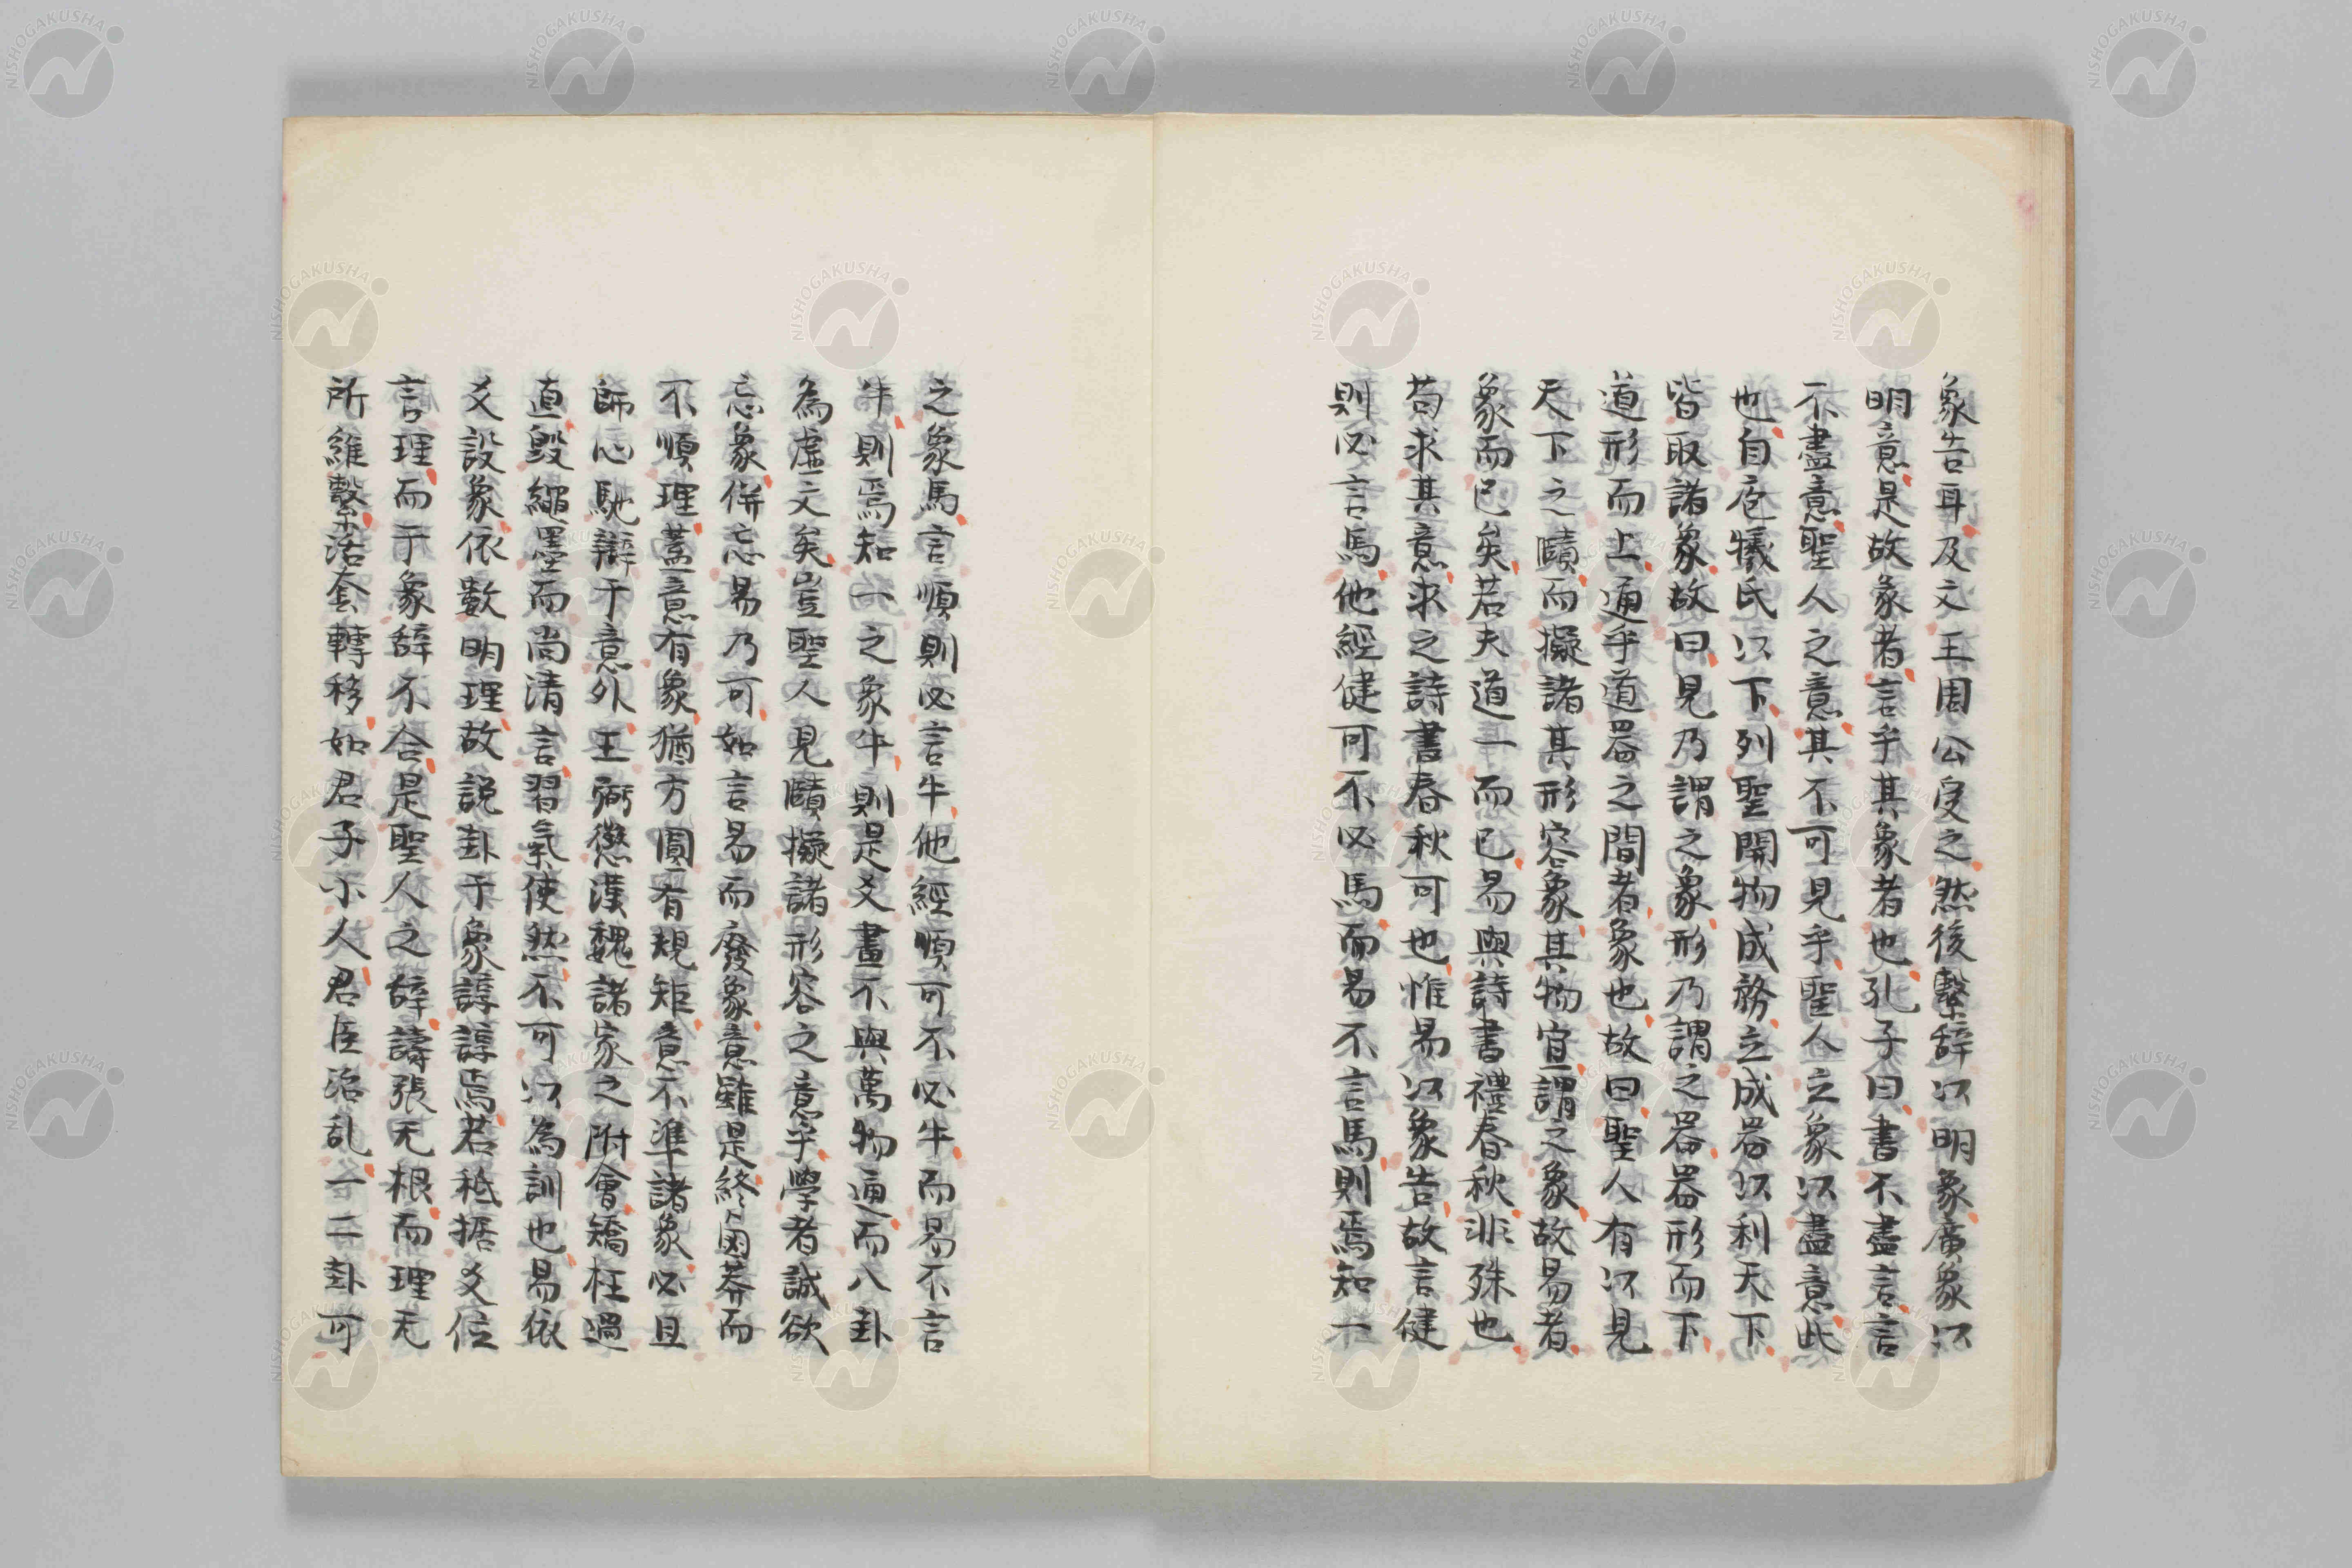 象告耳及文王周公受之然後繫辞以明象廣象以
明意是故象者言乎其象者也孔子曰書不盡言言
不盡意聖人之意其不可見乎聖人立象以盡意此
也自庖犠氏以下列聖開物成務立成器以利天下
皆取諸象故曰見乃謂之象形乃謂之器器形而下
道形而上通乎道器之間者象也故曰聖人有以見
天下之賾而擬諸其形容象其物宜謂之象故易者
象而已矣若夫道一而已易與詩書禮春秋非殊也
苟求其意求之詩書春秋可也惟易以象告故言健
則必言馬他經健可不必馬而易不言馬則焉知一
之象馬言順則必言牛他經順可不必牛而易不言
牛則焉知一之象牛則是爻畫不與萬物通而八卦
為虛文矣豈聖人見賾擬諸形容之意乎學者誠欲
忘象併忘易乃可如言易而廢象意雖是終鹵莽而
不順理蓋意有象猶方圓有規矩意不準諸象必且
師心馳辯于意外王弼懲漢魏諸家之附會矯枉過
直毀繩墨而尚清言習氣使然不可以為訓也易依
爻設象依數明理故說卦于象諄諄焉若秪据爻位
言理而于象辞不合是聖人之辞譸張无根而理无
所維繫活套轉移如君子小人君臣治乱一二卦可
NISHOGAKUSHA